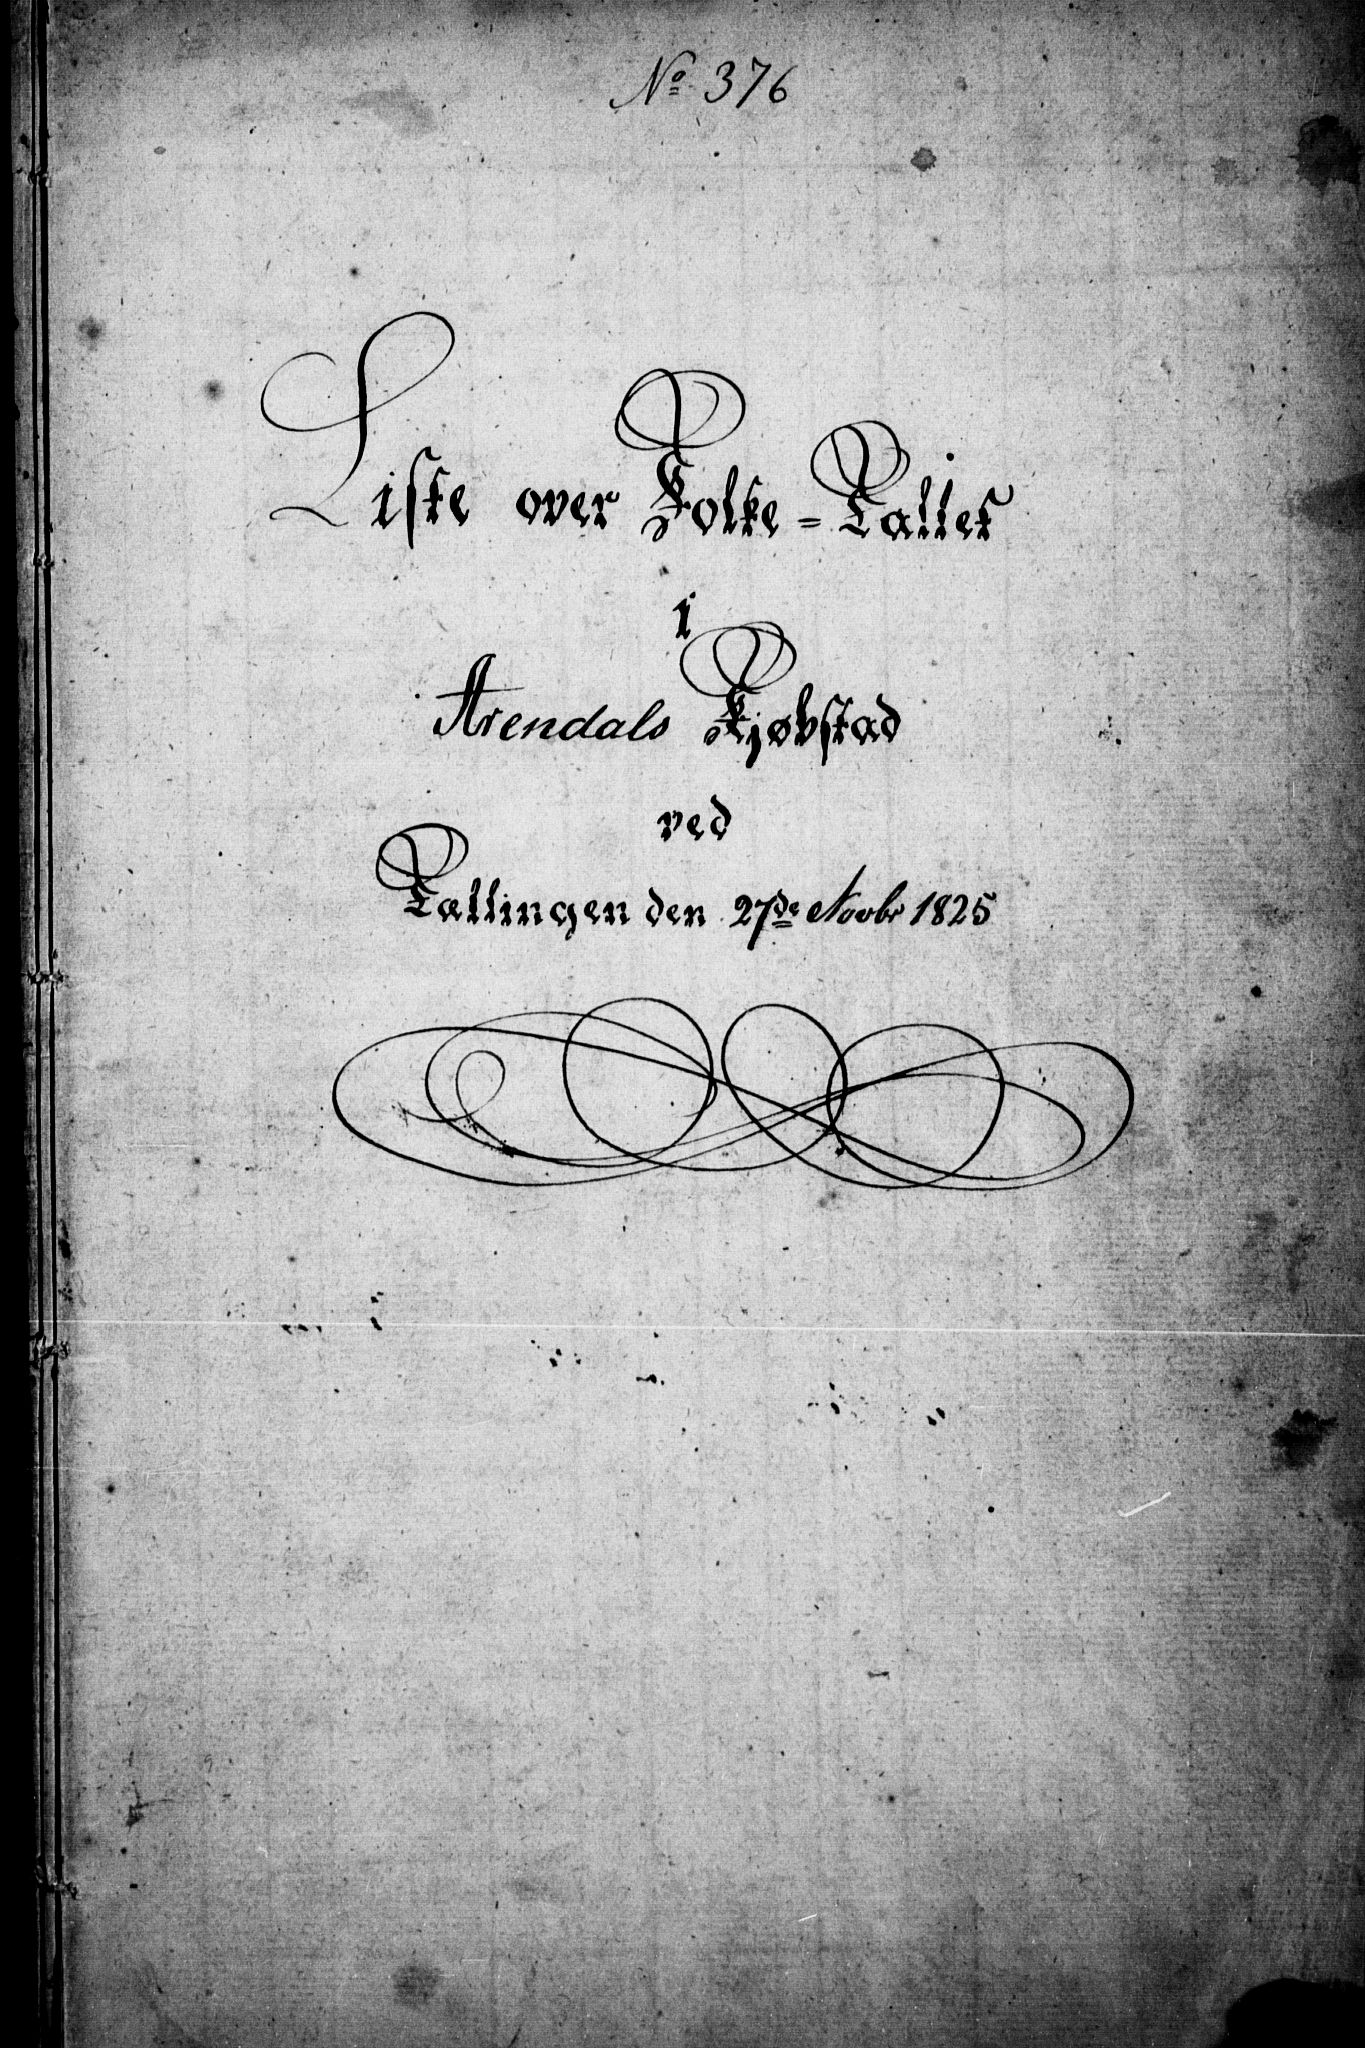 No 376
Liste over Folke=Tallet
i
Arendals Kjøbstad
ved
Tællingen den 27de Novbr 1825